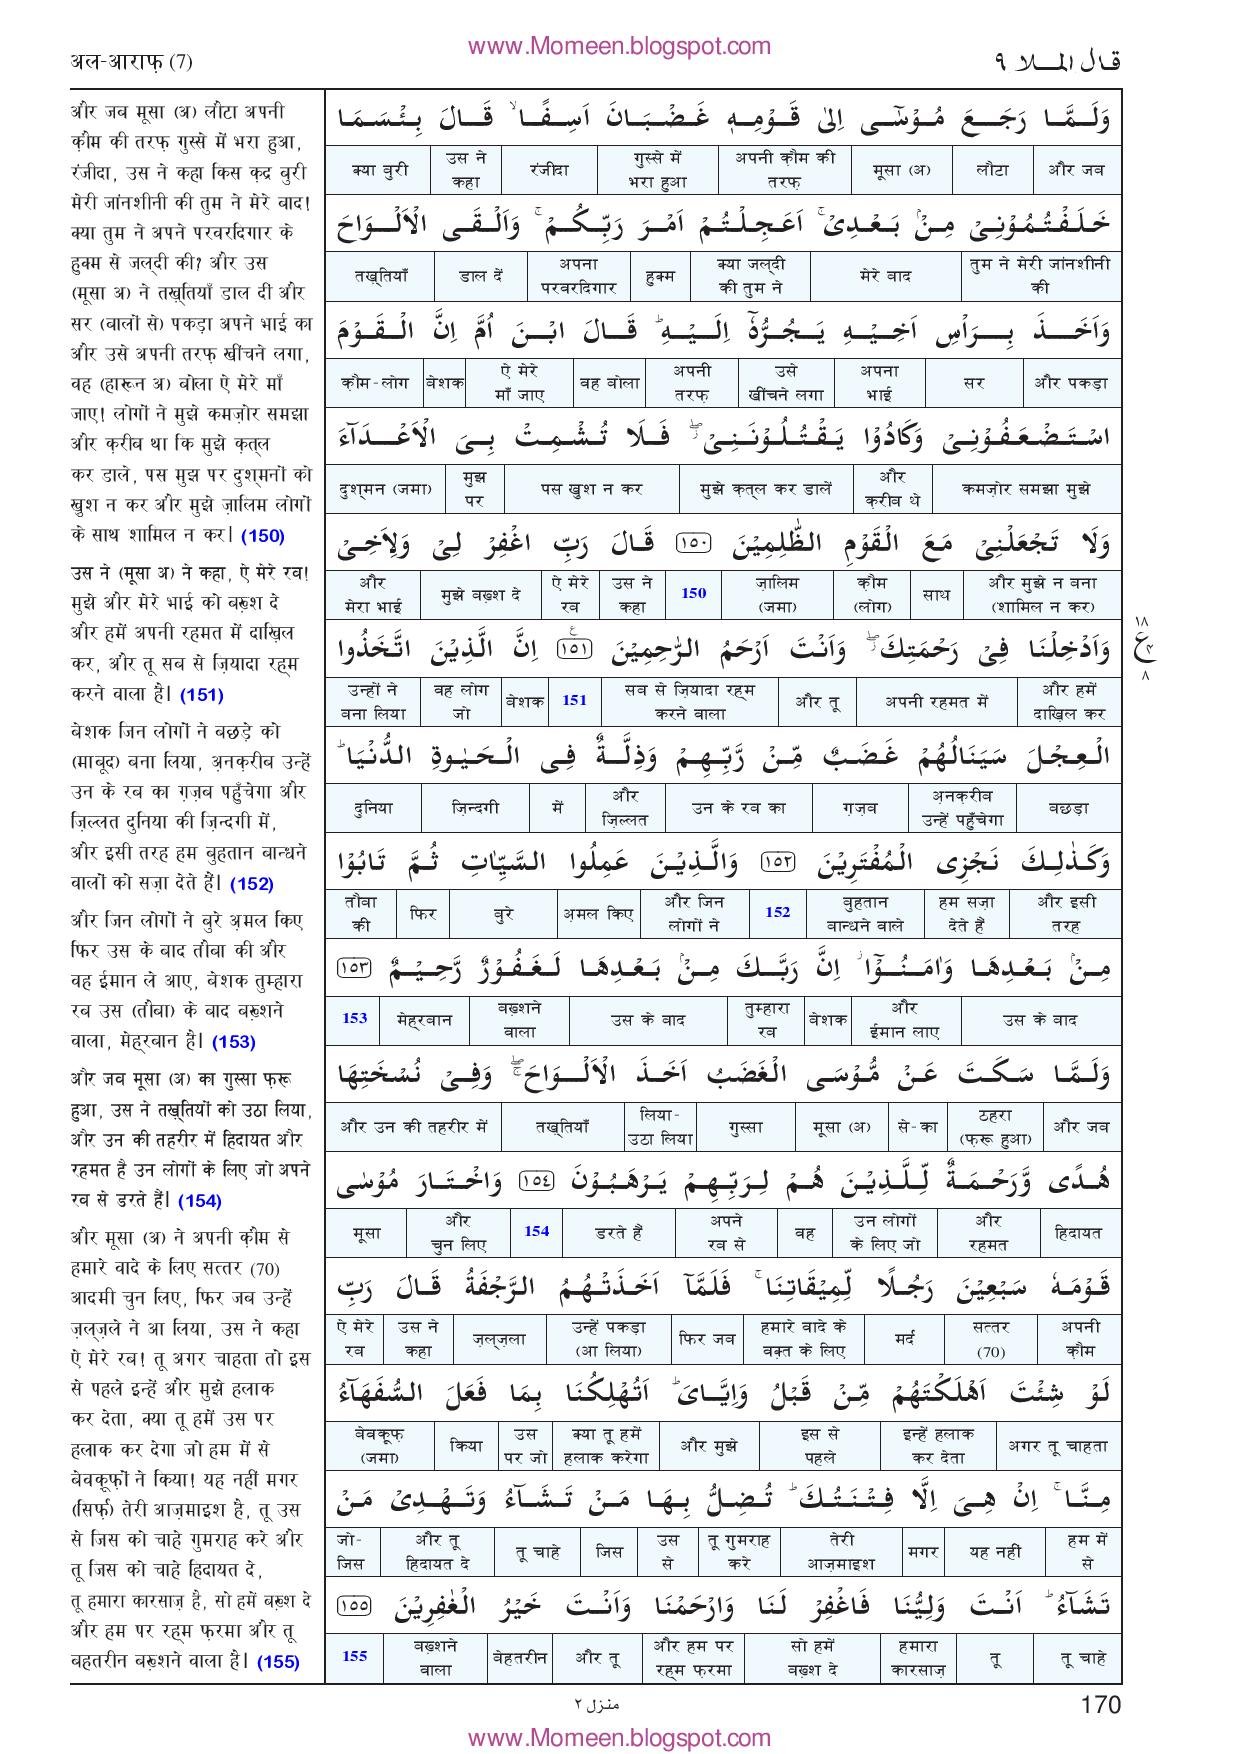 www.Momeen.blogspot.com
अल-आराफ़ (7)
قال الملا ٩
और जब मूसा (अ) लौटा अपनी
क़ौम की तरफ़ ग़ुस्से में भरा हुआ,
रंजीदा, उस ने कहा किस क़द्र बुरी
मेरी जांनशीनी की तुम ने मेरे बाद!
क्या तुम ने अपने परवरदिगार के
हुक्म से जल्दी की? और उस
(मूसा अ) ने तख़्तियाँ डाल दी और
सर (बालों से) पकड़ा अपने भाई का
और उसे अपनी तरफ़ खींचने लगा,
वह (हारून अ) बोला ऐ मेरे माँ
जाए! लोगों ने मुझे कमज़ोर समझा
और क़रीब था कि मुझे क़त्ल
कर डाले, पस मुझ पर दुश्मनों को
ख़ुश न कर और मुझे ज़ालिम लोगों
के साथ शामिल न कर। (150)
उस ने (मूसा अ) ने कहा, ऐ मेरे रब!
मुझे और मेरे भाई को बख़्श दे
और हमें अपनी रहमत में दाख़िल
कर, और तू सब से ज़ियादा रह्म
करने वाला है। (151)
बेशक जिन लोगों ने बछड़े को
(माबूद) बना लिया, अ़नक़रीब उन्हें
उन के रब का ग़ज़ब पहुँचेगा और
ज़िल्लत दुनिया की ज़िन्दगी में,
और इसी तरह हम बुहतान बान्धने
वालों को सज़ा देते हैं। (152)
और जिन लोगों ने बुरे अ़मल किए
फिर उस के बाद तौबा की और
वह ईमान ले आए, बेशक तुम्हारा
रब उस (तौबा) के बाद बख़्शने
वाला, मेहरबान है। (153)
और जब मूसा (अ) का ग़ुस्सा फ़रू
हुआ, उस ने तख़्तियों को उठा लिया,
और उन की तहरीर में हिदायत और
रहमत है उन लोगों के लिए जो अपने
रब से डरते हैं। (154)
और मूसा (अ) ने अपनी क़ौम से
हमारे वादे के लिए सत्तर (70)
आदमी चुन लिए, फिर जब उन्हें
ज़ल्ज़ले ने आ लिया, उस ने कहा
ऐ मेरे रब! तू अगर चाहता तो इस
से पहले इन्हें और मुझे हलाक
कर देता, क्या तू हमें उस पर
हलाक कर देगा जो हम में से
बेवक़ूफ़ों ने किया! यह नहीं मगर
(सिर्फ़) तेरी आज़माइश है, तू उस
से जिस को चाहे गुमराह करे और
तू जिस को चाहे हिदायत दे,
तू हमारा कारसाज़ है, सो हमें बख़्श दे
और हम पर रह्म फ़रमा और तू
बहतरीन बख़्शने वाला है। (155)
وَلَمَّا رَجَعَ مُوْسٰٓى اِلٰى قَوْمِهٖ غَضْبَانَ اَسِفًا ۙ قَالَ بِئْسَمَا
क्या बुरी | उस ने कहा | रंजीदा | ग़ुस्से में भरा हुआ | अपनी क़ौम की तरफ़ | मूसा (अ) | लौटा | और जब
خَلَفْتُمُوْنِيْ مِنْۢ بَعْدِيْ ۚ اَعَجِلْتُمْ اَمْرَ رَبِّكُمْ ۚ وَاَلْقَى الْاَلْوَاحَ
तख़्तियाँ | डाल दें | अपना परवरदिगार | हुक्म | क्या जल्दी की तुम ने | मेरे बाद | तुम ने मेरी जांनशीनी की
وَاَخَذَ بِرَاْسِ اَخِيْهِ يَجُرُّهٗٓ اِلَيْهِ ؕ قَالَ ابْنَ اُمَّ اِنَّ الْقَوْمَ
क़ौम-लोग | बेशक | ऐ मेरे माँ जाए | वह बोला | अपनी तरफ़ | उसे खींचने लगा | अपना भाई | सर | और पकड़ा
اسْتَضْعَفُوْنِيْ وَكَادُوْا يَقْتُلُوْنَنِيْ ۖ فَلَا تُشْمِتْ بِيَ الْاَعْدَآءَ
दुश्मन (जमा) | मुझ पर | पस ख़ुश न कर | मुझे क़त्ल कर डालें | और क़रीब थे | कमज़ोर समझा मुझे
وَلَا تَجْعَلْنِيْ مَعَ الْقَوْمِ الظّٰلِمِيْنَ ١٥٠ قَالَ رَبِّ اغْفِرْ لِيْ وَلِاَخِيْ
और मेरा भाई | मुझे बख़्श दे | ऐ मेरे रब | उस ने कहा | 150 | ज़ालिम (जमा) | क़ौम (लोग) | साथ | और मुझे न बना (शामिल न कर)
وَاَدْخِلْنَا فِيْ رَحْمَتِكَ ۖ وَاَنْتَ اَرْحَمُ الرّٰحِمِيْنَ ١٥١ اِنَّ الَّذِيْنَ اتَّخَذُوا
١٨
ع
٤
٨
उन्हों ने बना लिया | वह लोग जो | बेशक | 151 | सब से ज़ियादा रह्म करने वाला | और तू | अपनी रहमत में | और हमें दाख़िल कर
الْعِجْلَ سَيَنَالُهُمْ غَضَبٌ مِّنْ رَّبِّهِمْ وَذِلَّةٌ فِي الْحَيٰوةِ الدُّنْيَا ؕ
दुनिया | ज़िन्दगी | में | और ज़िल्लत | उन के रब का | ग़ज़ब | अ़नक़रीब उन्हें पहुँचेगा | बछड़ा
وَكَذٰلِكَ نَجْزِي الْمُفْتَرِيْنَ ١٥٢ وَالَّذِيْنَ عَمِلُوا السَّيِّاٰتِ ثُمَّ تَابُوْا
तौबा की | फिर | बुरे | अ़मल किए | और जिन लोगों ने | 152 | बुहतान बान्धने वाले | हम सज़ा देते हैं | और इसी तरह
مِنْۢ بَعْدِهَا وَاٰمَنُوْٓا ۫ اِنَّ رَبَّكَ مِنْۢ بَعْدِهَا لَغَفُوْرٌ رَّحِيْمٌ ١٥٣
153 | मेहरबान | बख़्शने वाला | उस के बाद | तुम्हारा रब | बेशक | और ईमान लाए | उस के बाद
وَلَمَّا سَكَتَ عَنْ مُّوْسَى الْغَضَبُ اَخَذَ الْاَلْوَاحَ ۖ وَفِيْ نُسْخَتِهَا
और उन की तहरीर में | तख़्तियाँ | लिया-उठा लिया | ग़ुस्सा | मूसा (अ) | से-का | ठहरा (फ़रू हुआ) | और जब
هُدًى وَّرَحْمَةٌ لِّلَّذِيْنَ هُمْ لِرَبِّهِمْ يَرْهَبُوْنَ ١٥٤ وَاخْتَارَ مُوْسٰى
मूसा | और चुन लिए | 154 | डरते हैं | अपने रब से | वह | उन लोगों के लिए जो | और रहमत | हिदायत
قَوْمَهٗ سَبْعِيْنَ رَجُلًا لِّمِيْقَاتِنَا ۚ فَلَمَّآ اَخَذَتْهُمُ الرَّجْفَةُ قَالَ رَبِّ
ऐ मेरे रब | उस ने कहा | ज़ल्ज़ला | उन्हें पकड़ा (आ लिया) | फिर जब | हमारे वादे के वक़्त के लिए | मर्द | सत्तर (70) | अपनी क़ौम
لَوْ شِئْتَ اَهْلَكْتَهُمْ مِّنْ قَبْلُ وَاِيَّايَ ؕ اَتُهْلِكُنَا بِمَا فَعَلَ السُّفَهَآءُ
बेवक़ूफ़ (जमा) | किया | उस पर जो | क्या तू हमें हलाक करेगा | और मुझे | इस से पहले | इन्हें हलाक कर देता | अगर तू चाहता
مِنَّا ۚ اِنْ هِيَ اِلَّا فِتْنَتُكَ ؕ تُضِلُّ بِهَا مَنْ تَشَآءُ وَتَهْدِيْ مَنْ
जो-जिस | और तू हिदायत दे | तू चाहे | जिस | उस से | तू गुमराह करे | तेरी आज़माइश | मगर | यह नहीं | हम में से
تَشَآءُ ؕ اَنْتَ وَلِيُّنَا فَاغْفِرْ لَنَا وَارْحَمْنَا وَاَنْتَ خَيْرُ الْغٰفِرِيْنَ ١٥٥
155 | बख़्शने वाला | बेहतरीन | और तू | और हम पर रह्म फ़रमा | सो हमें बख़्श दे | हमारा कारसाज़ | तू | तू चाहे
منزل ٢
170
www.Momeen.blogspot.com